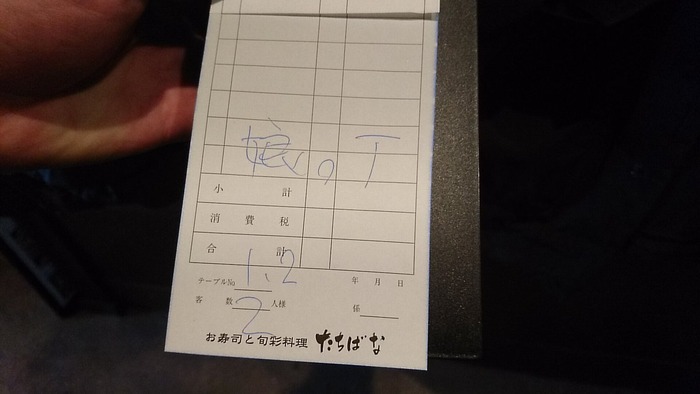 小計
消費税
合計
テーブルNo 1.2
年 月 日
客数 2 人様
係
お寿司と旬彩料理 たちばな